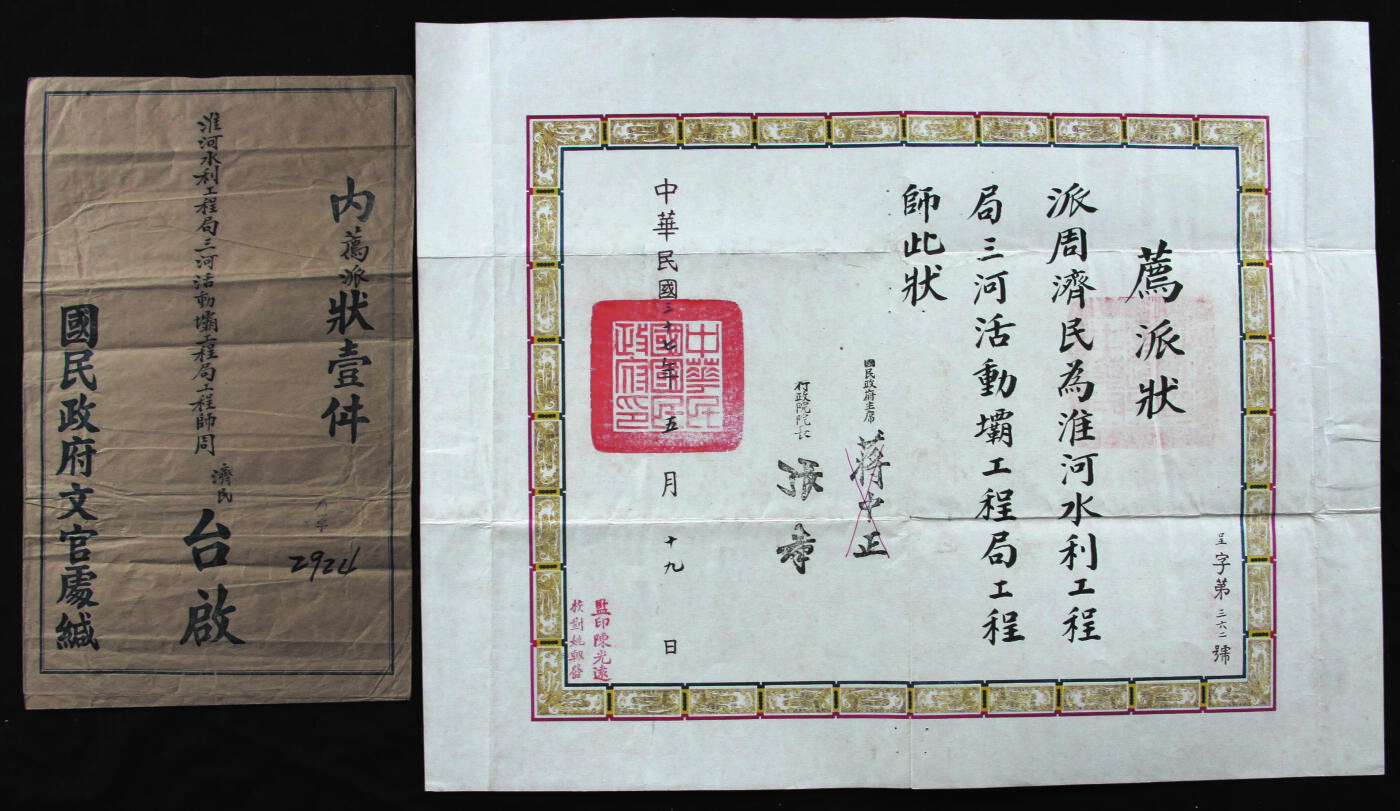 內薦派狀壹件
淮河水利工程局三河活動壩工程局工程師周
濟民
台啟
2924
國民政府文官處緘
薦派狀
派周濟民為淮河水利工程
局三河活動壩工程局工程
師此狀
國民政府主席
蔣中正
行政院院長
張羣
中華民國三十七年五月十九日
中華民國國民政府印
呈字第三六二號
監印陳光遠
校對姚興啓